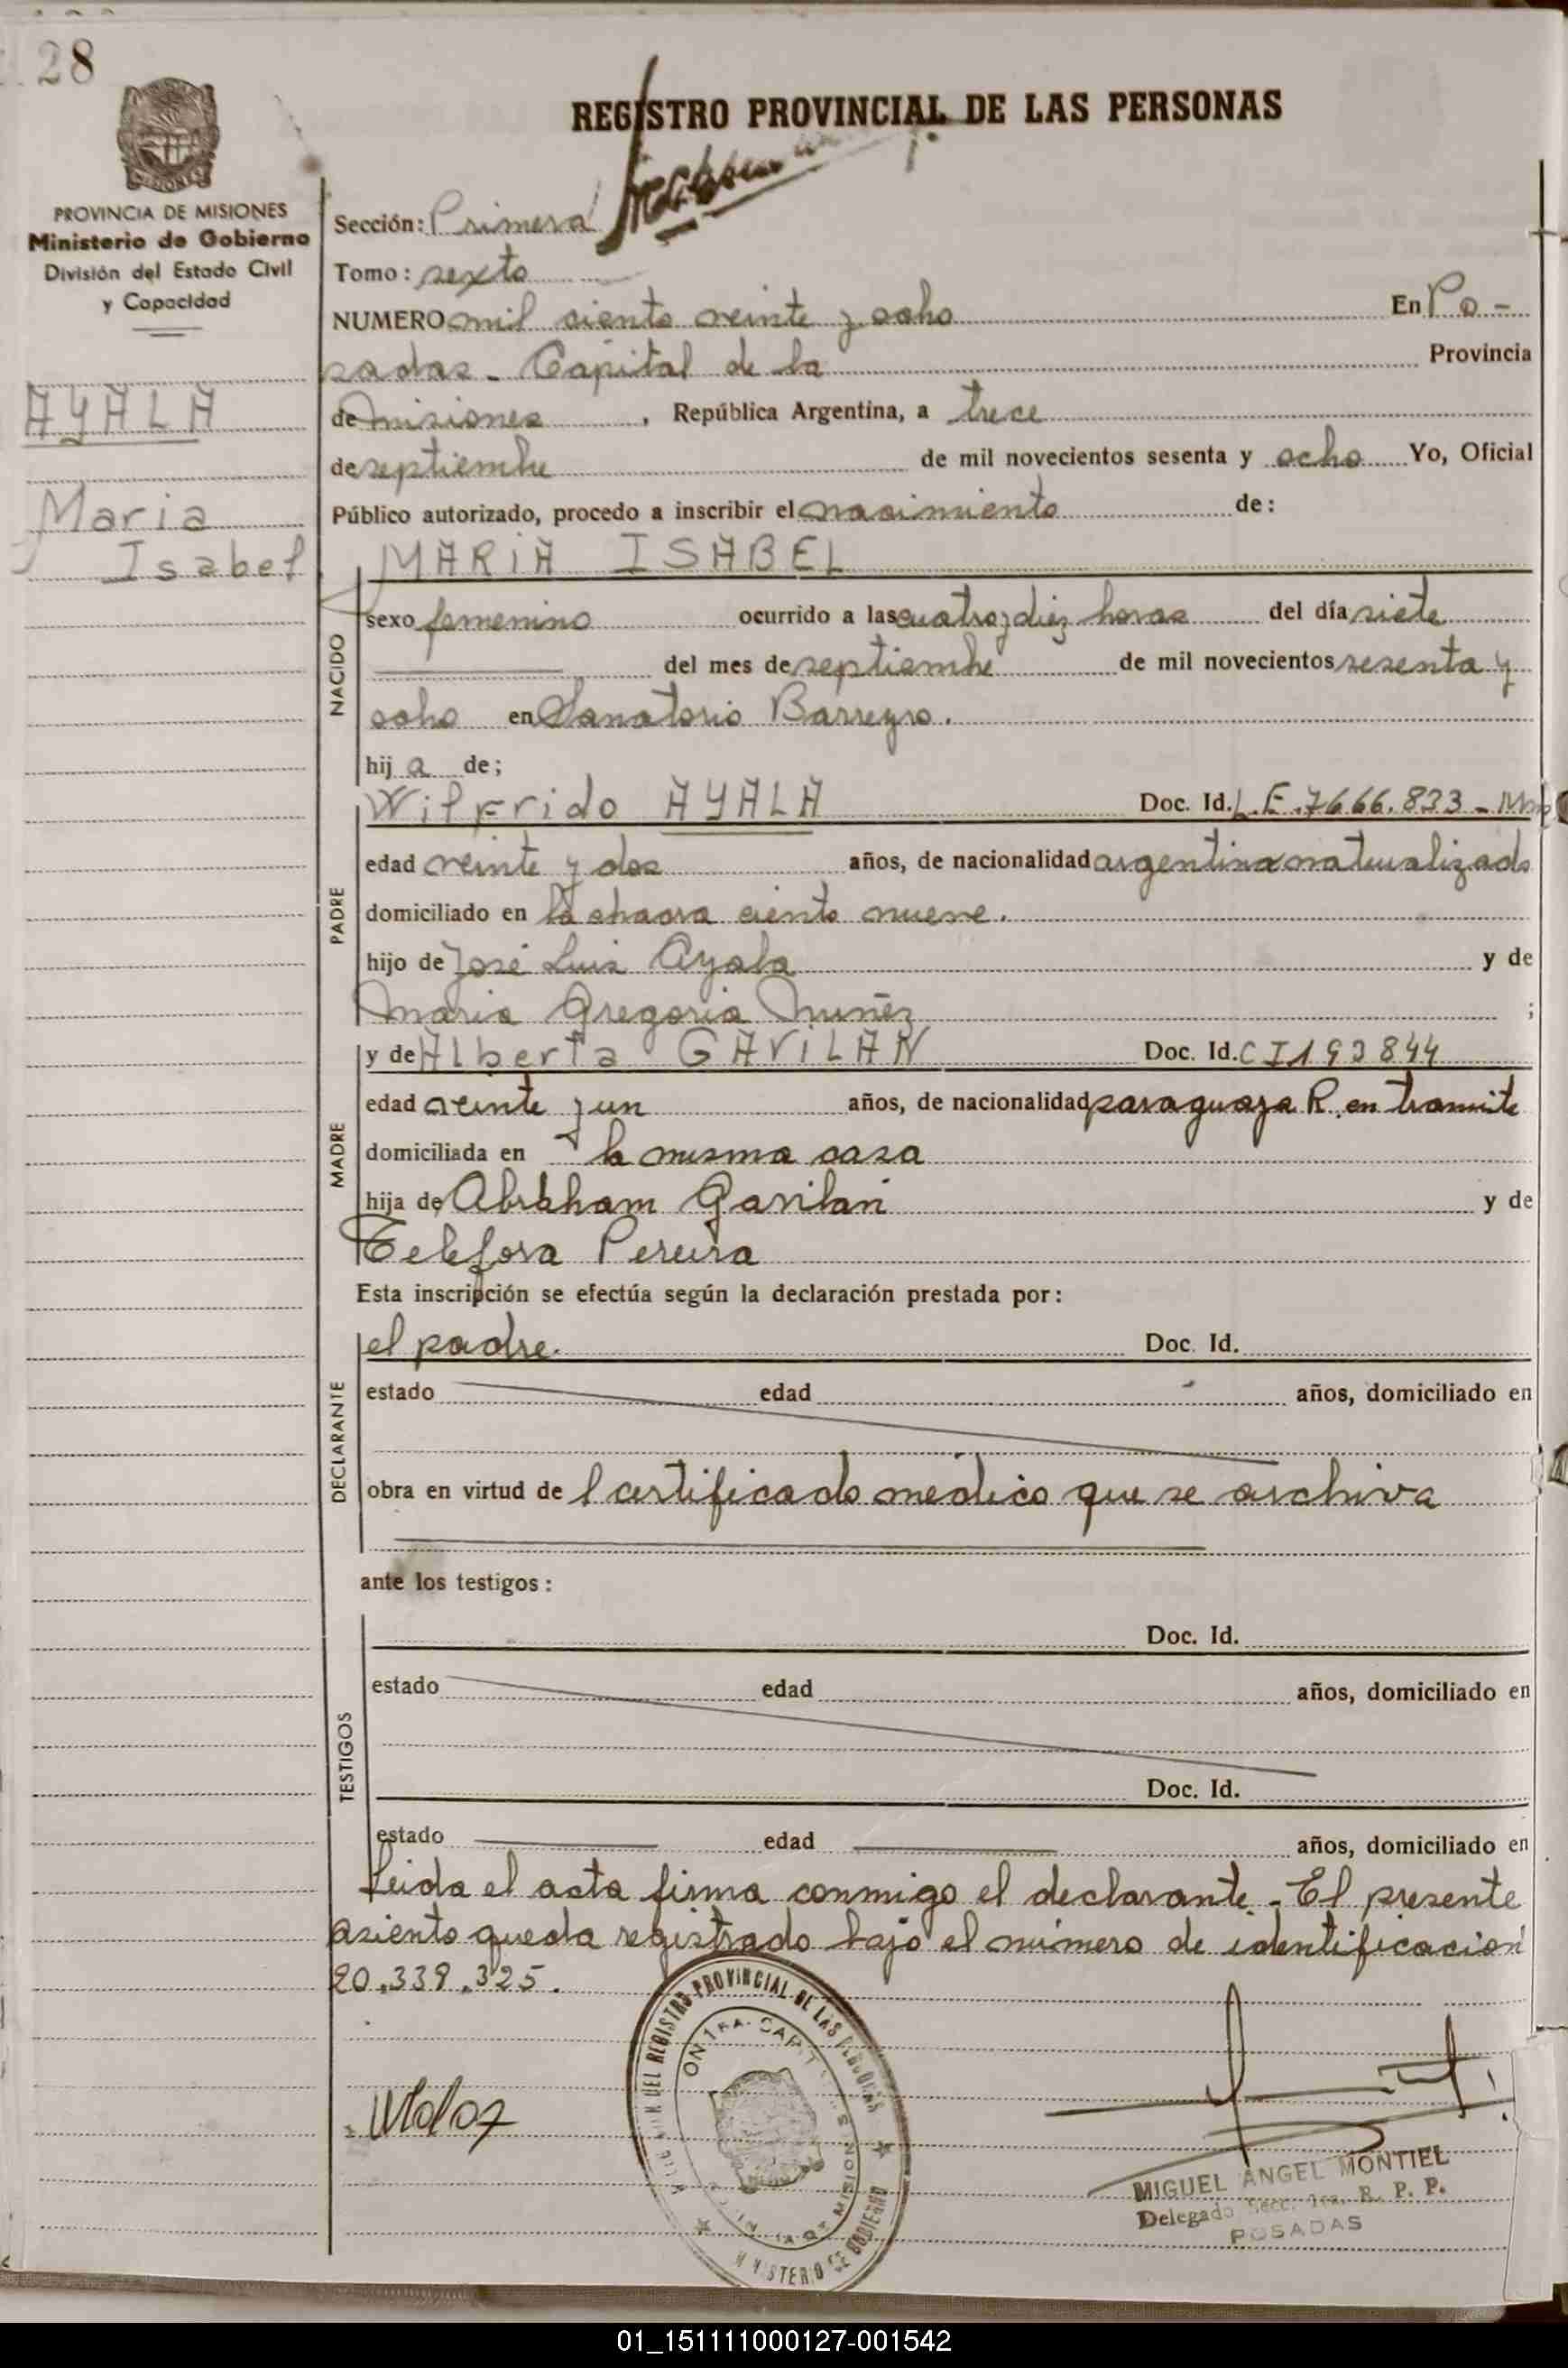 28
REGISTRO PROVINCIAL DE LAS PERSONAS
PROVINCIA DE MISIONES
Ministerio de Gobierno
División del Estado Civil
y Capacidad
AYALA
Maria
Isabel
Sección: Primera
Tomo: sexto
NUMERO mil ciento veinte y ocho En Po-
sadas - Capital de la Provincia
de Misiones, República Argentina, a trece
de septiembre de mil novecientos sesenta y ocho Yo, Oficial
Público autorizado, procedo a inscribir el nacimiento de:
MARIA ISABEL
NACIDO
sexo femenino ocurrido a las cuatro y diez horas del día siete
del mes de septiembre de mil novecientos sesenta y
ocho en Sanatorio Barreyro.
hij a de;
PADRE
Wilfrido AYALA Doc. Id. L.E. 7666.833 -
edad veinte y dos años, de nacionalidad argentina naturalizado
domiciliado en la chacra ciento nueve.
hijo de José Luis Ayala y de
Maria Gregoria Nuñez ;
MADRE
y de Alberta GAVILAN Doc. Id. CI 193844
edad veinte y un años, de nacionalidad paraguaya R. en tramite
domiciliada en la misma casa
hija de Abraham Gavilan y de
Telefora Pereira
Esta inscripción se efectúa según la declaración prestada por:
DECLARANTE
el padre. Doc. Id.
estado edad años, domiciliado en
obra en virtud de l certificado médico que se archiva
ante los testigos:
TESTIGOS
Doc. Id.
estado edad años, domiciliado en
Doc. Id.
estado edad años, domiciliado en
Leida el acta firma conmigo el declarante - El presente
asiento queda registrado bajo el número de identificación
20.339.325.
DEL REGISTRO PROVINCIAL DE LAS PERSONAS
MINISTERIO DE GOBIERNO
MIGUEL ANGEL MONTIEL
Delegado Secc. 1ra. R. P. P.
POSADAS
01_151111000127-001542